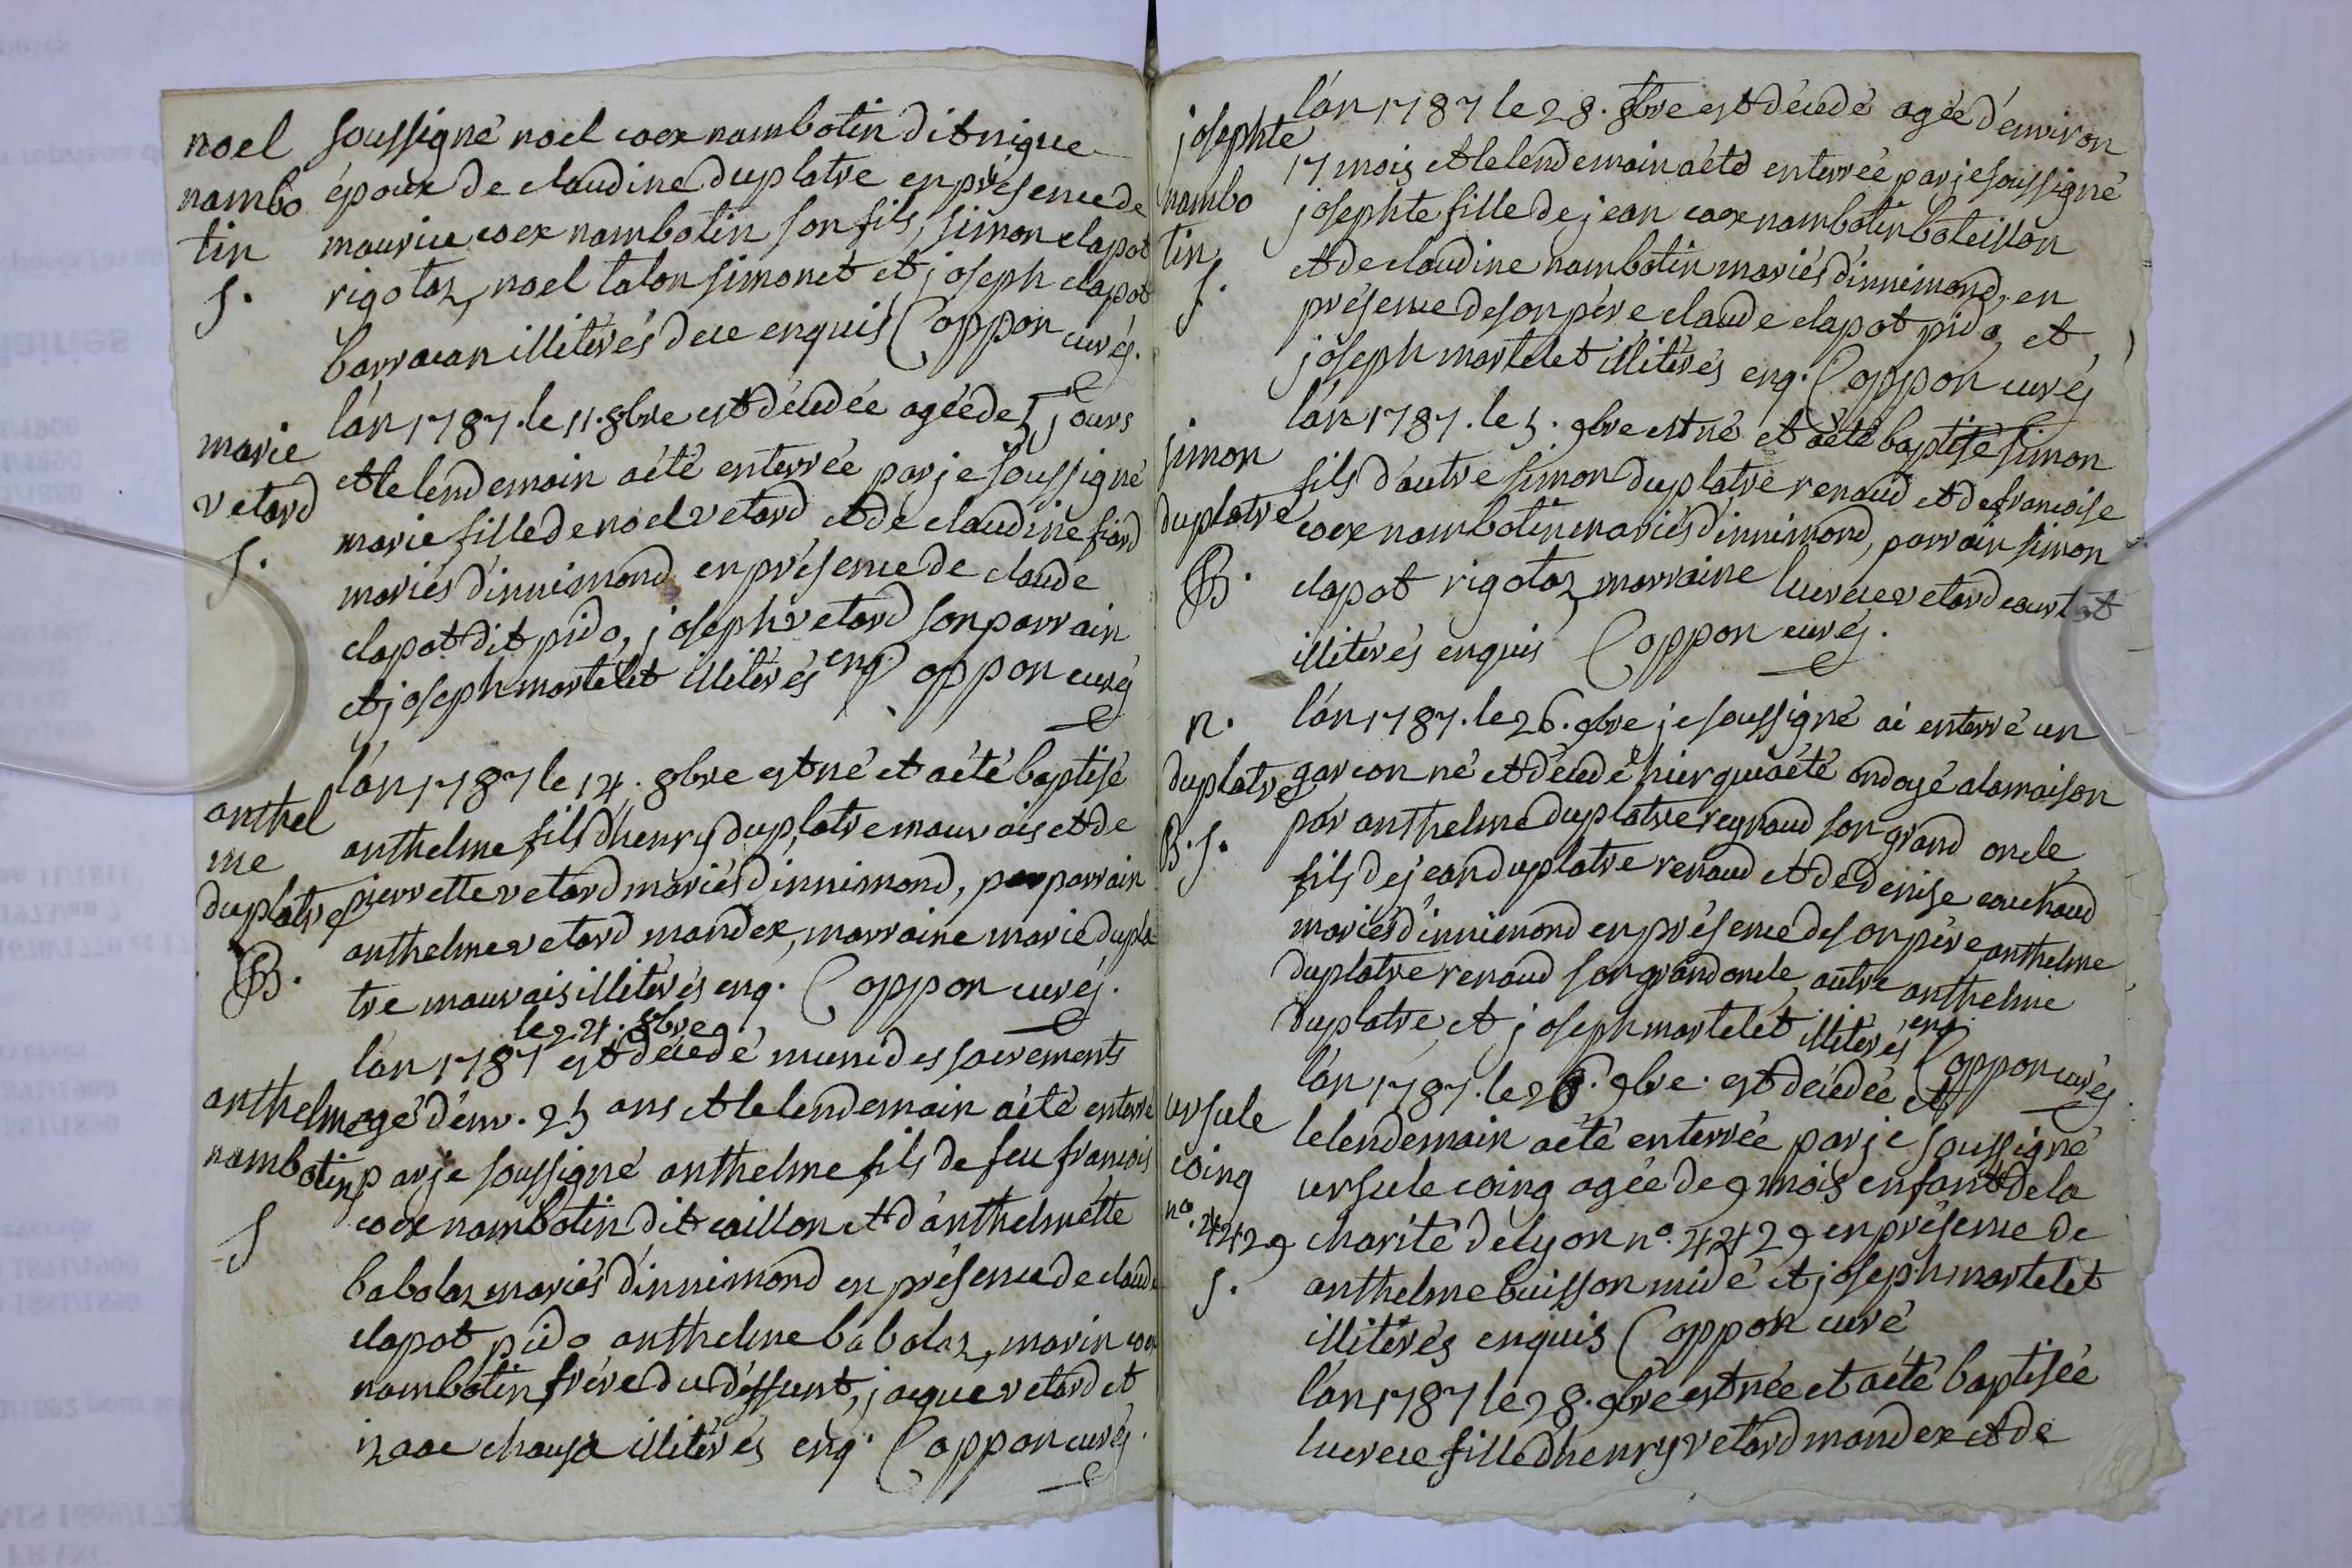 noel
nambo
tin
s.
soussigné noel coex nambotin dit nigue
époux de claudine duplatre en présence de
maurice coex nambotin son fils, simon clapot
rigotaz, noel talon simonet et joseph clapot
barracan illitérés de ce enquis Coppon curé.
marie
vetard
s.
lán 1787. le 11. 8bre est décédée agée de 5 jours
et le lendemain a été enterrée par je soussigné
marie fille de noel vetard et de claudine fiard
mariés d'innimond en présence de claude
clapot dit pido, joseph vetard son parrain
et joseph martelet illitérés enq. Coppon curé
anthel
me
duplatre
B.
lán 1787 le 14. 8bre est né et a été baptisé
anthelme fils dhenry duplatre mauvais et de
pierrette vetard mariés d'innimond, parrain
anthelme vetard mandex, marraine marie dupla
tre mauvais illitérés enq. Coppon curé.
anthelme
nambotin
s
le 24. 8bre
lán 1787 est décédé muni des sacrements
agé d'env. 25 ans et le lendemain a été enterré
par je soussigné anthelme fils de feu francois
coex nambotin dit caillon et d'anthelmette
babolaz mariés d'innimond en présence de claude
clapot pido anthelme babolaz, marin coex
nambotin frère du déffunt, jacque vetard et
izaac chausa illitérés enq. Coppon curé.
josephte
nambo
tin
s.
lán 1787 le 28. 8bre est décédé agée d'environ
17 mois et le lendemain a été enterrée par je soussigné
josephte fille de jean coex nambotin boteillon
et de claudine nambotin mariés d'innimond, en
présence de son père claude clapot pido, et
joseph martelet illitérés enq. Coppon curé
simon
duplatre
B.
lán 1787. le 5. 9bre est né et a été baptisé simon
fils d'autre simon duplatre renaud et de francoise
coex nambotin mariés d'innimond, parrain simon
clapot rigotaz, marraine lucrece vetard courtat
illitérés enquis Coppon curé.
n.
duplatre
B. s.
lán 1787. le 26. 9bre je soussigné ai enterré un
garcon né et décédé hier qui a été ondoyé a la maison
par anthelme duplatre reynaud son grand oncle,
fils de jean duplatre renaud et de denise cauchoud
mariés d'innimond en présence de son père anthelme
duplatre renaud son grand oncle, autre anthelme
duplatre, et joseph martelet illitérés enq. Coppon curé
ursule
coing
no. 4429
s.
lán 1787. le 26. 9bre. est décédée et
le lendemain a été enterrée par je soussigné
ursule coing agée de 9 mois enfant de la
charité de lyon no. 4429 en présence de
anthelme buisson midé et joseph martelet
illitérés enquis Coppon curé
lán 1787 le 28. 9bre est née et a été baptisée
lucrece fille dhenry vetard mandex et de